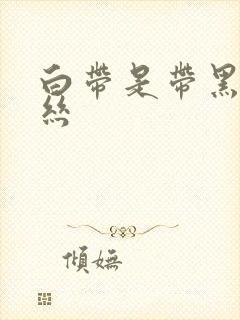 白带是带黑
丝
倾妩